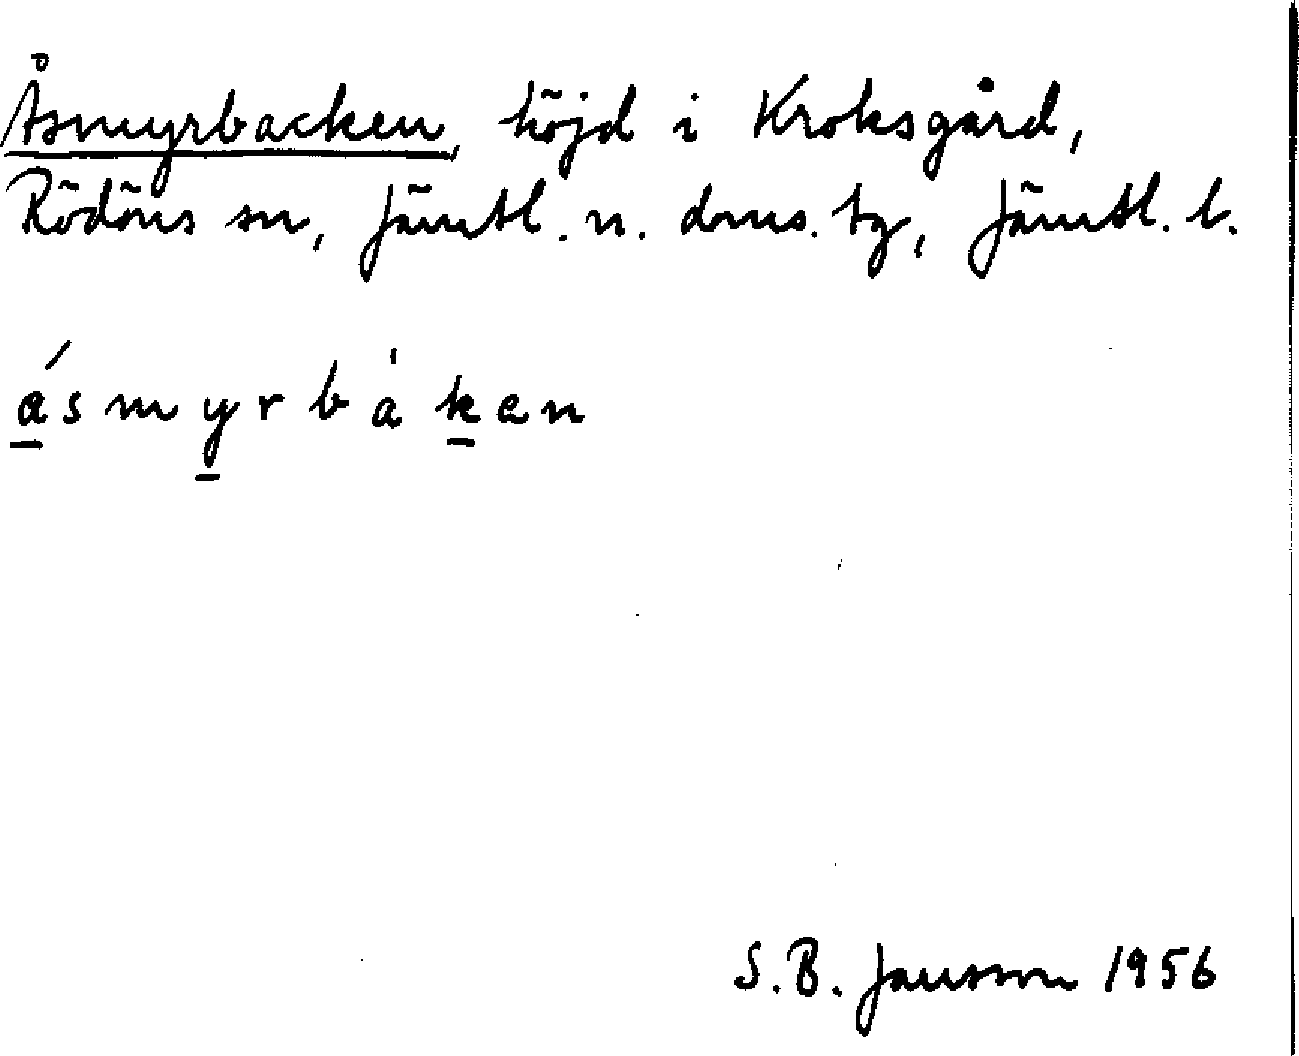 Åsmyrbacken, höjd i Kroksgård,
Rödöns sn, Jämtl. n. doms. tg, Jämtl. l.
á̲smy̲rbàk̲en
S. B. Jansson 1956